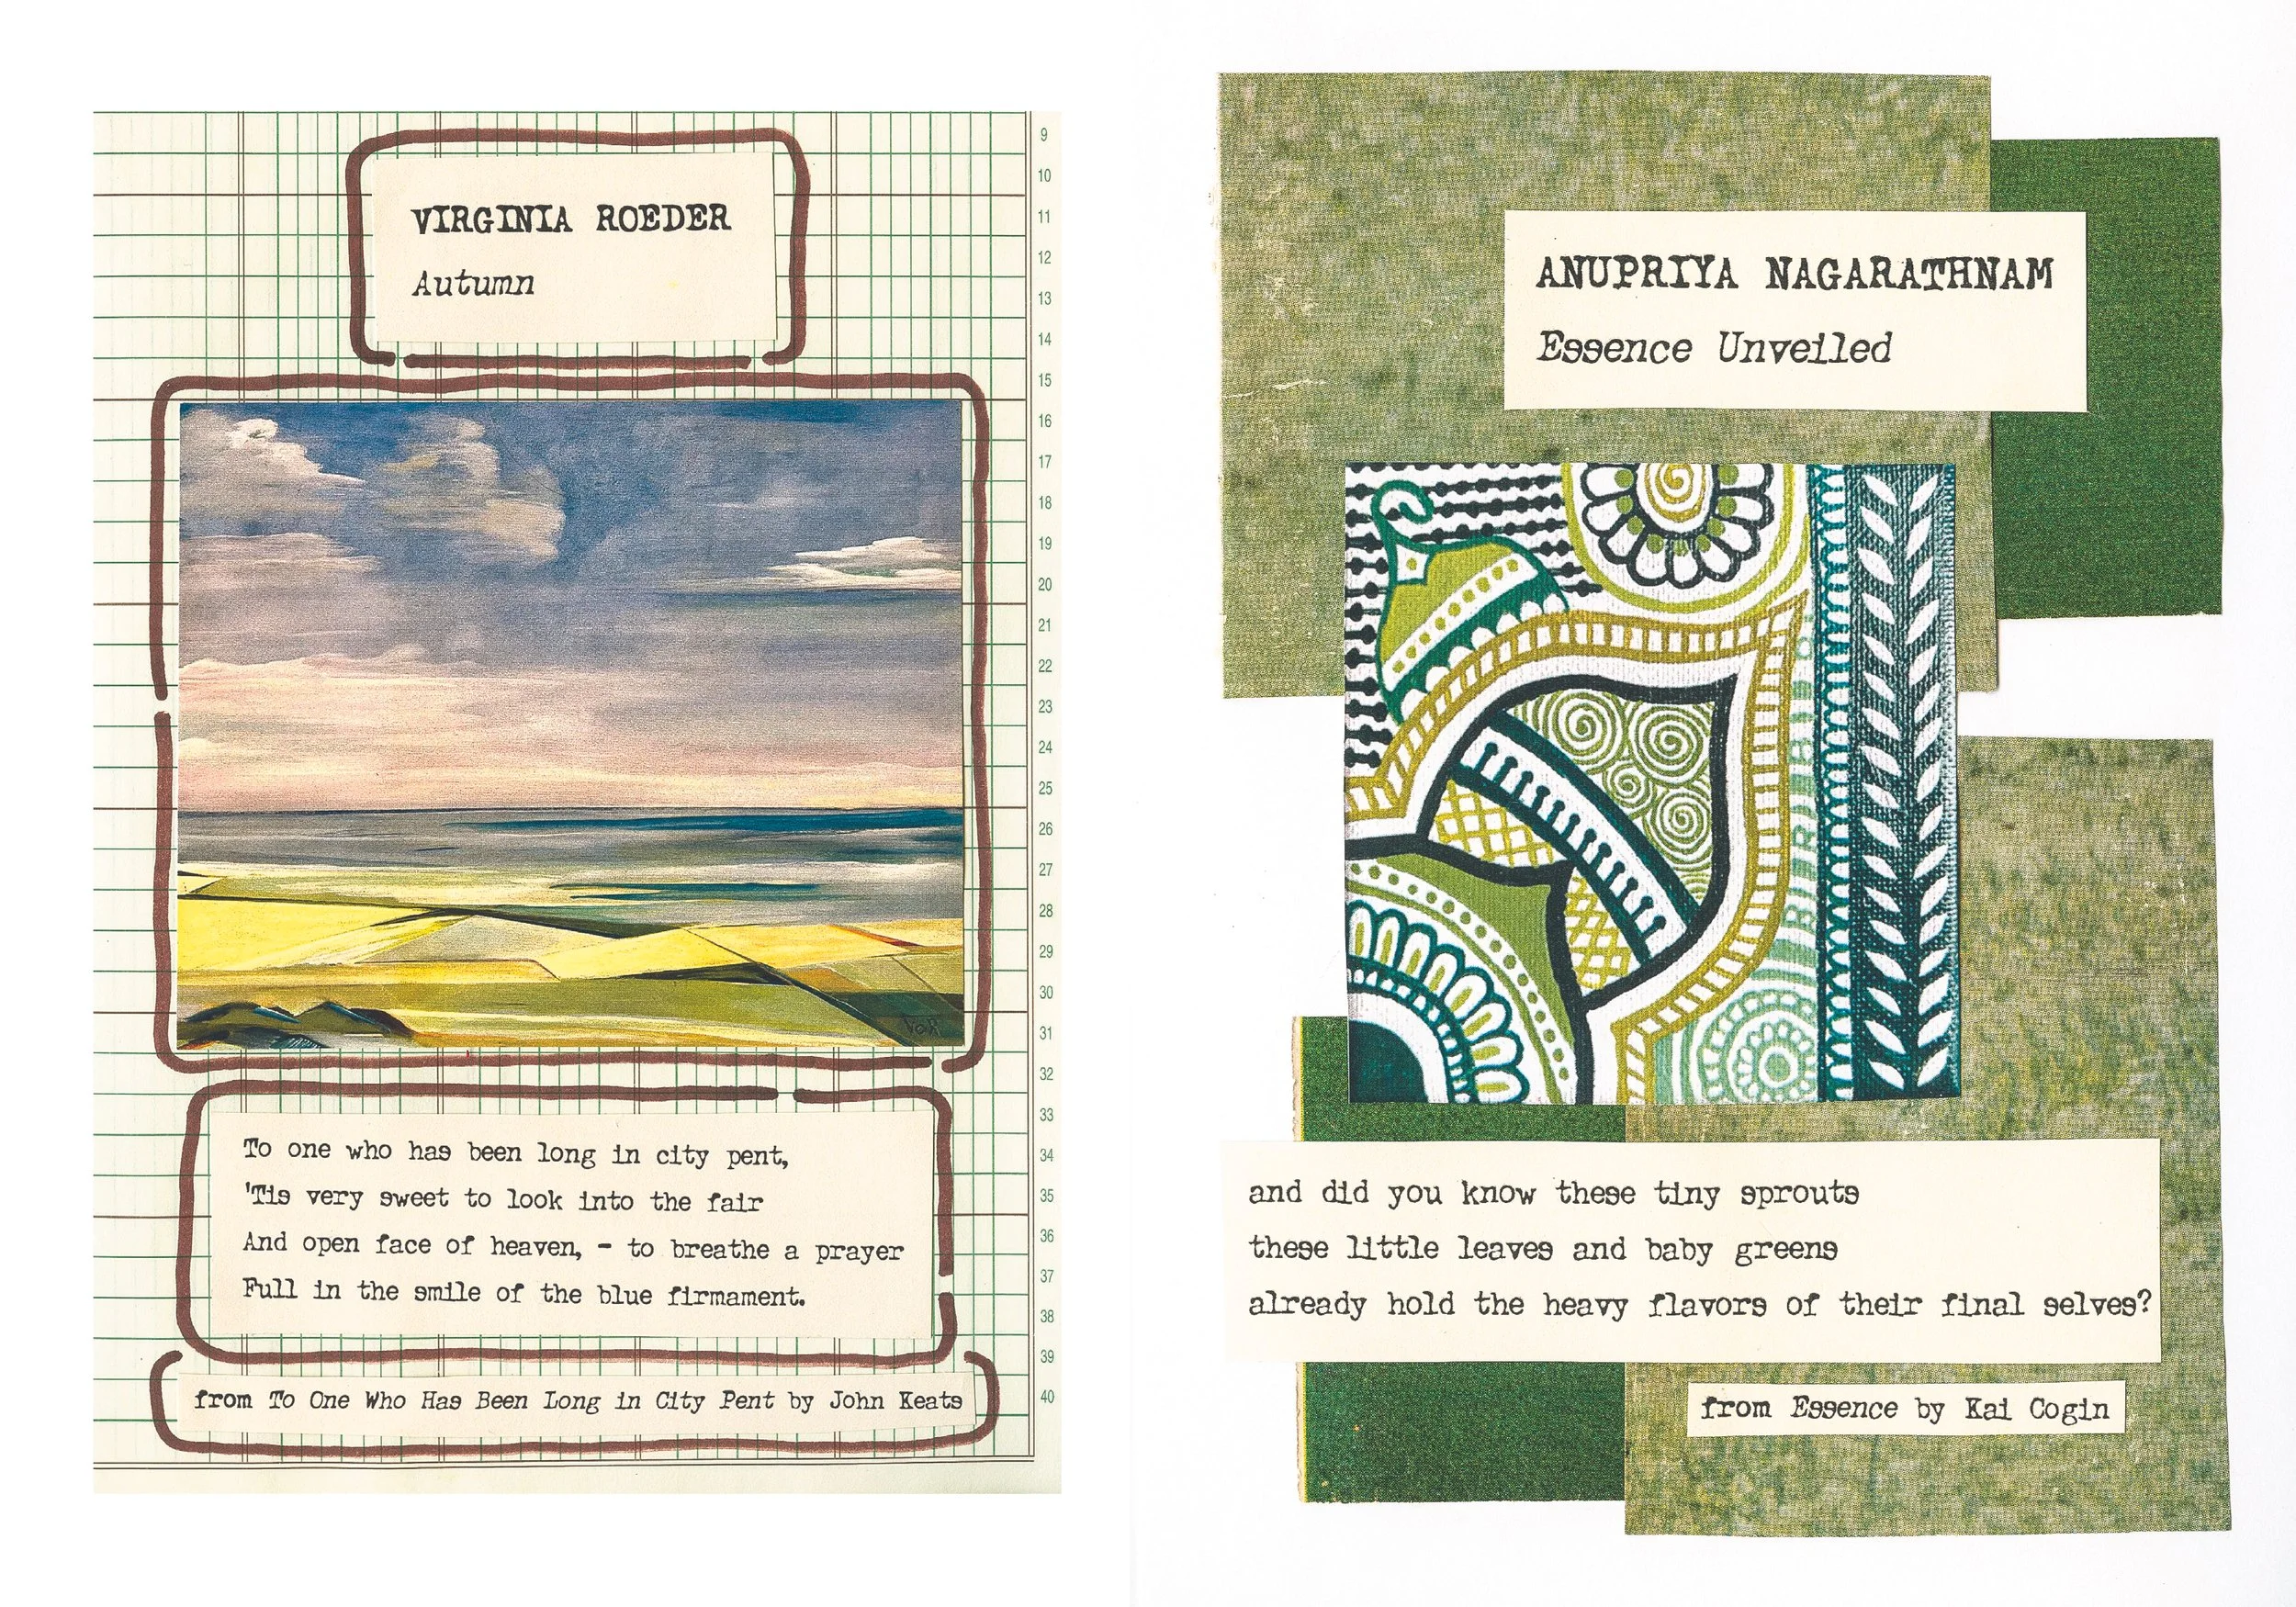 VIRGINIA ROEDER
Autumn
9
10
11
12
13
14
15
16
17
18
19
20
21
22
23
24
25
26
27
28
29
30
31
32
33
34
35
36
37
38
39
40
To one who has been long in city pent,
'Tis very sweet to look into the fair
And open face of heaven, - to breathe a prayer
Full in the smile of the blue firmament.
from To One Who Has Been Long in City Pent by John Keats
ANUPRIYA NAGARATHNAM
Essence Unveiled
and did you know these tiny sprouts
these little leaves and baby greens
already hold the heavy flavors of their final selves?
from Essence by Kai Cogin